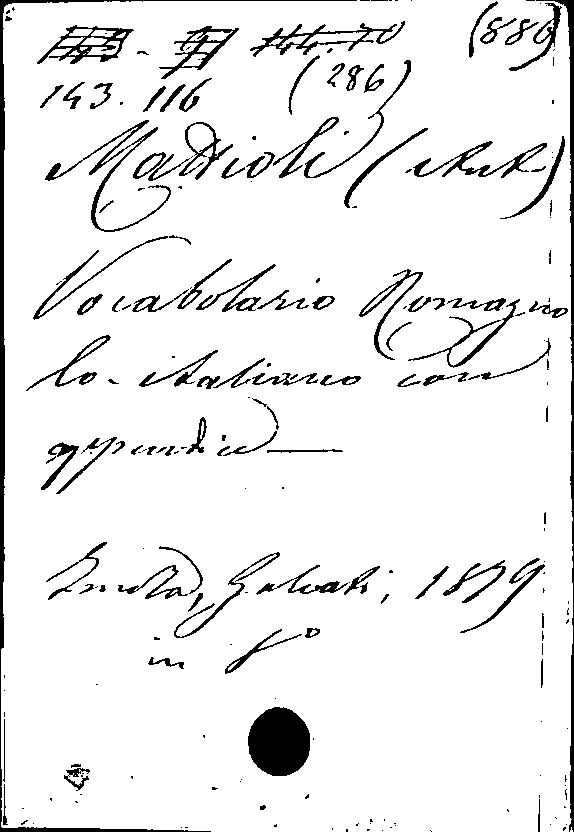 (889
143. 116 (286)
Mattioli (Ant)
Vocabolario Romagno
lo-italiano con
appendice
Imola, Galeati, 1879
in 8º